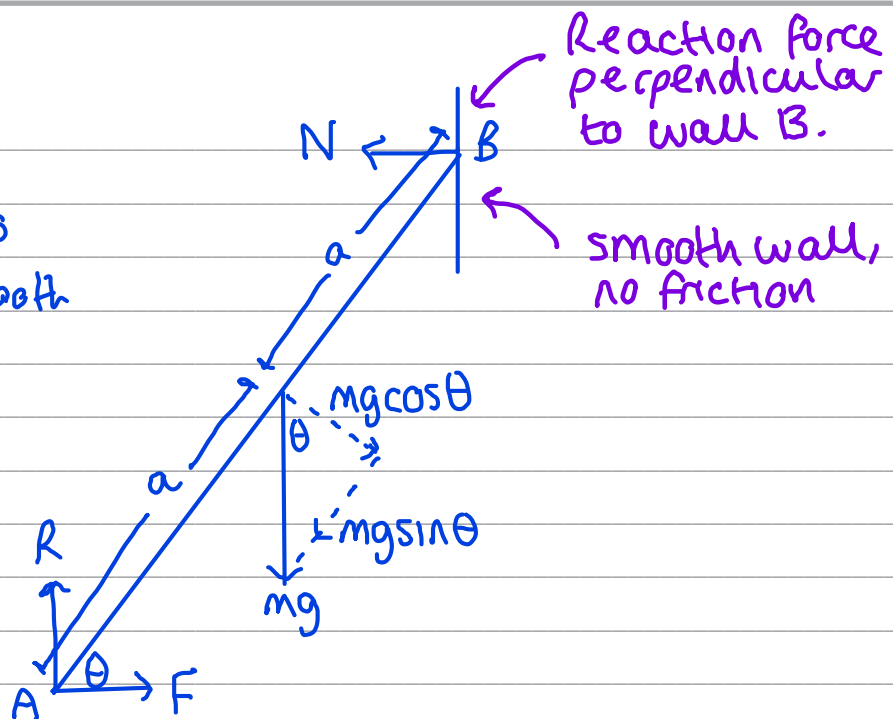 Reaction force
perpendicular
to wall B.
N
B
a
smooth wall,
no friction
mgcosθ
θ
a
mgsinθ
R
mg
θ
F
A